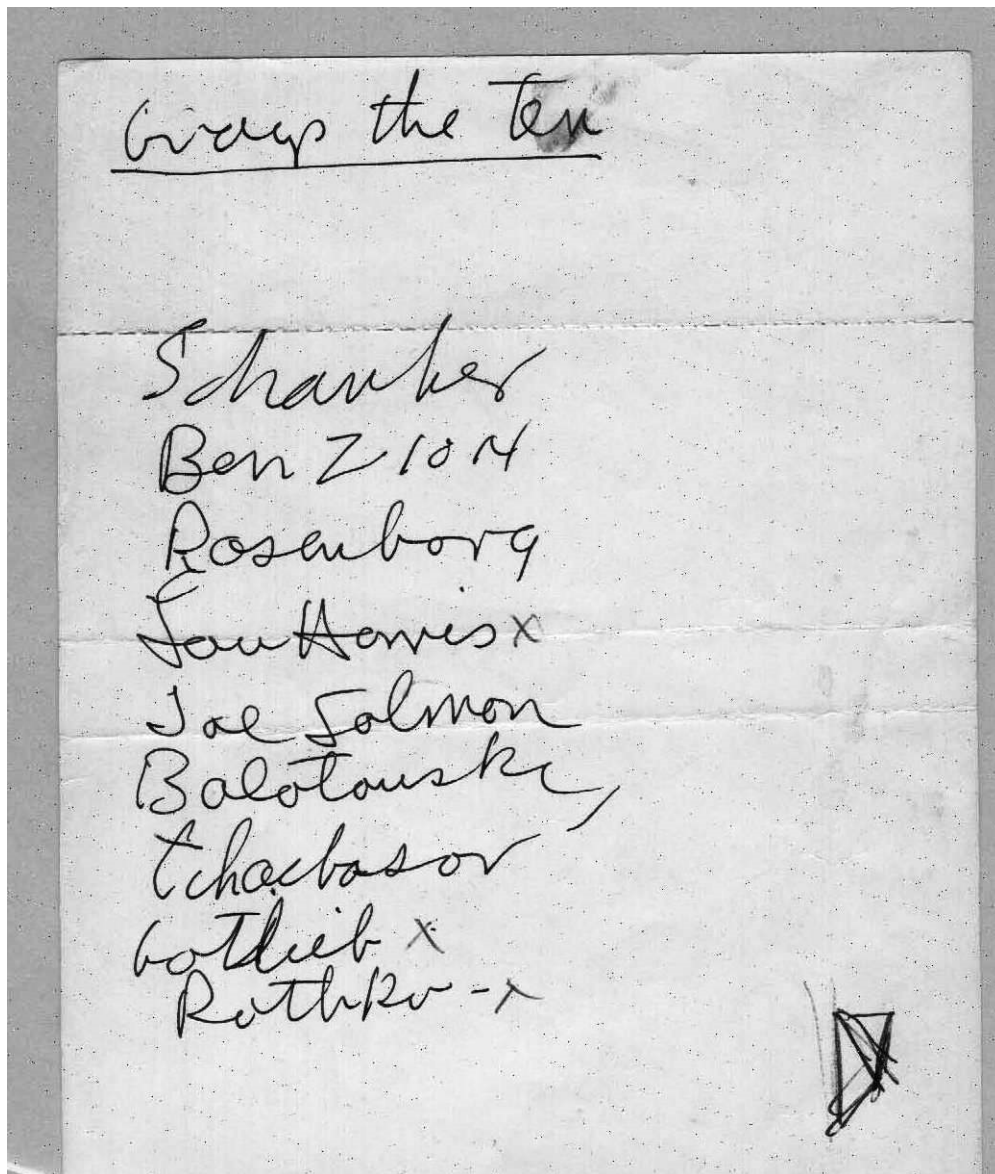 Group the Ten
Schanker
Ben Z10N
Rosenborg
Lou Harris x
Joe Solmon
Bolotouski,
Tchacbasov
Gottlieb x
Rothko - x